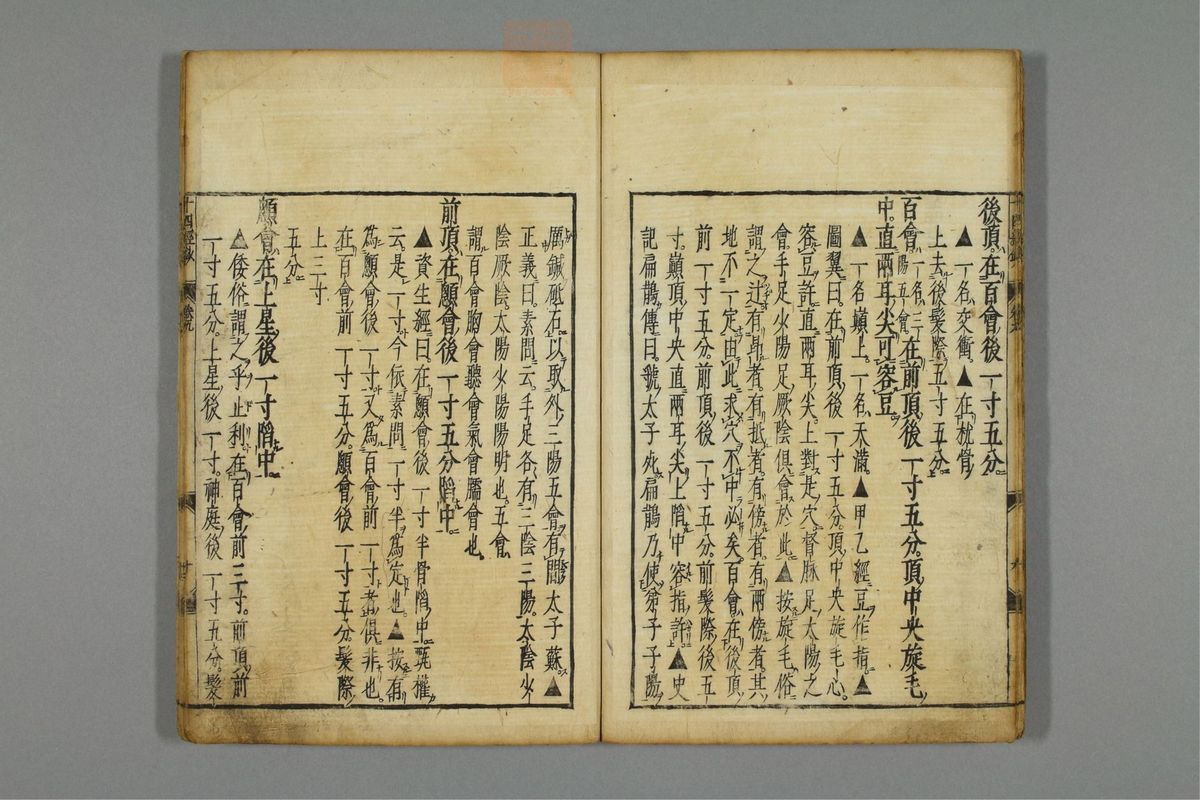 後頂在百會後一寸五分
▲一名交衝▲在枕骨
上去後髮際五寸五分
百會一名三陽五會在前頂後一寸五分頂中央旋毛
中直兩耳尖可容豆
▲一名巔上一名天滿▲甲乙經豆作指▲
圖翼曰在前頂後一寸五分頂中央旋毛心
容豆許直兩耳尖上對是穴督脉足太陽之
會手足少陽足厥陰俱會於此▲按旋毛俗
謂之辻有鼻者有抵者有傍者有兩傍者其
地不一定由此求穴不中必矣百會在後頂
前一寸五分前頂後一寸五分前髮際後五
寸巔頂中央直兩耳尖上陷中容指許▲史
記扁鵲傳曰虢太子死扁鵲乃使弟子子陽
厲鍼砥石以取外三陽五會有間太子蘇▲
正義曰素問云手足各有三陰三陽太陰少
陰厥陰太陽少陽陽明也五會
謂百會胸會聽會氣會臑會也
前頂在顖會後一寸五分陷中
▲資生經曰在顖會後一寸半骨陷中甄權
云是一寸今依素問一寸半為定也▲按有
為顖會後一寸又為百會前一寸者俱非也
在百會前一寸五分顖會後一寸五分髮際
上三寸
五分
顖會在上星後一寸陷中
▲倭俗謂之乎止利在百會前三寸前頂前
一寸五分上星後一寸神庭後一寸五分髮